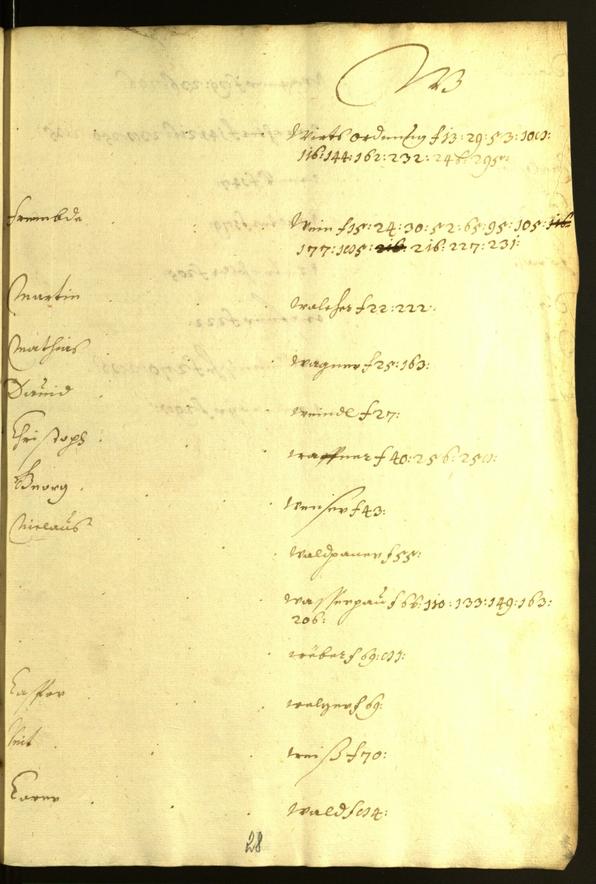 W
Wirts ordnung f 13: 29: 53: 100:
116: 144: 162: 232: 248: 295:
frembde Wein f 15: 24: 30: 52: 65: 95: 105: 116:
177: 105: 216: 216: 227: 231:
Martin Walcher f 22: 222:
Mathias Wagner f 25: 163:
Dauid Weindl f 27:
Christoph Waffner f 40: 256: 250:
Georg Weiser f 43:
Niclaus Waldpauer f 55:
Wasserpau f 66: 110: 133: 149: 163:
206:
Wöber f 69:
Casper Walzer f 69:
Veit Weiß f 70:
Wald
28